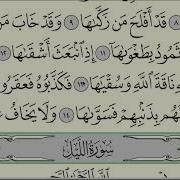 ٨ قَدْ أَفْلَحَ مَن زَكَّىٰهَا ٩ وَقَدْ خَابَ مَن
ثَمُودُ بِطَغْوَىٰهَآ ١١ إِذِ ٱنۢبَعَثَ أَشْقَىٰهَا ١٢
نَاقَةَ ٱللَّهِ وَسُقْيَٰهَا ١٣ فَكَذَّبُوهُ فَعَقَرُو
هُم بِذَنۢبِهِمْ فَسَوَّىٰهَا ١٤ وَلَا يَخَافُ
سُورَةُ اللَّيْلِ